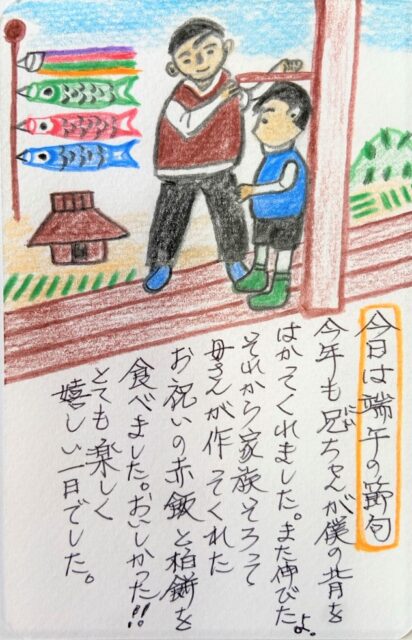 今日は端午の節句
今年も兄ちゃんが僕の背を
はかってくれました。また伸びたよ。
それから家族そろって
母さんが作ってくれた
お祝いの赤飯と柏餅を
食べました。おいしかった!!
とても楽しく
嬉しい一日でした。